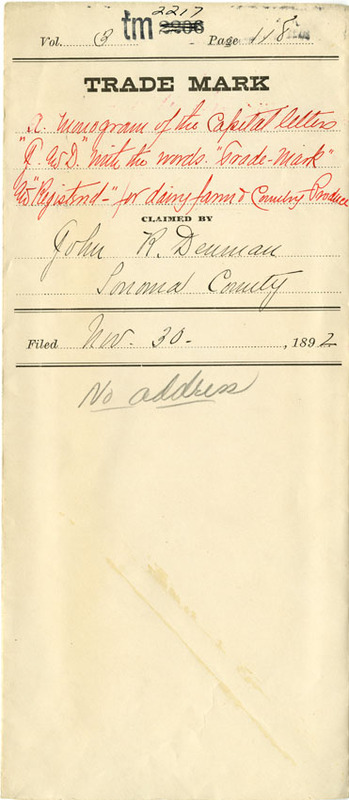 2217
Vol. 3 tm 2206 Page 118
TRADE MARK
A. Monogram of the Capital letters
"J. & D." with the words. "Trade-Mark"
& "Registered-" for dairy farm & Country Produce
CLAIMED BY
John R. Denman
Sonoma County
Filed Nov. 30- , 1892
No address